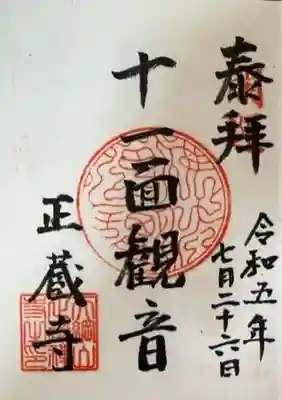 奉拝
令和五年
七月二十六日
十一面観音
正蔵寺